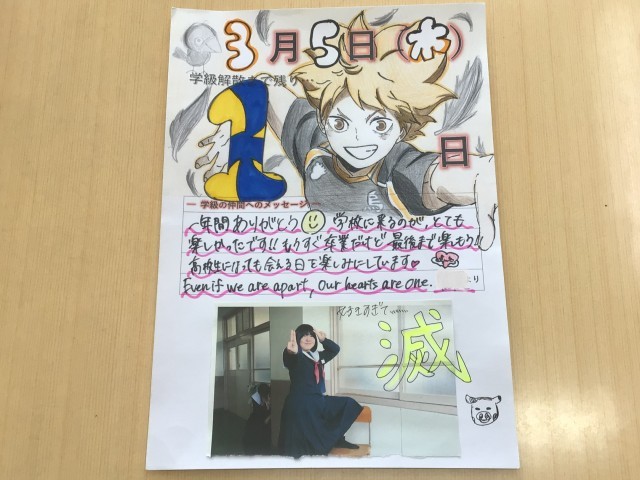 3月5日(木)
学級解散まで残り…
1日
烏
― 学級の仲間へのメッセージ
一年間ありがとう 学校に来るのが、とても
楽しかったです!!もうすぐ卒業だけど最後まで楽しもう!!
高校生になっても会える日を楽しみにしています
Even if we are apart, our hearts are one.
より
好きすぎて……
滅